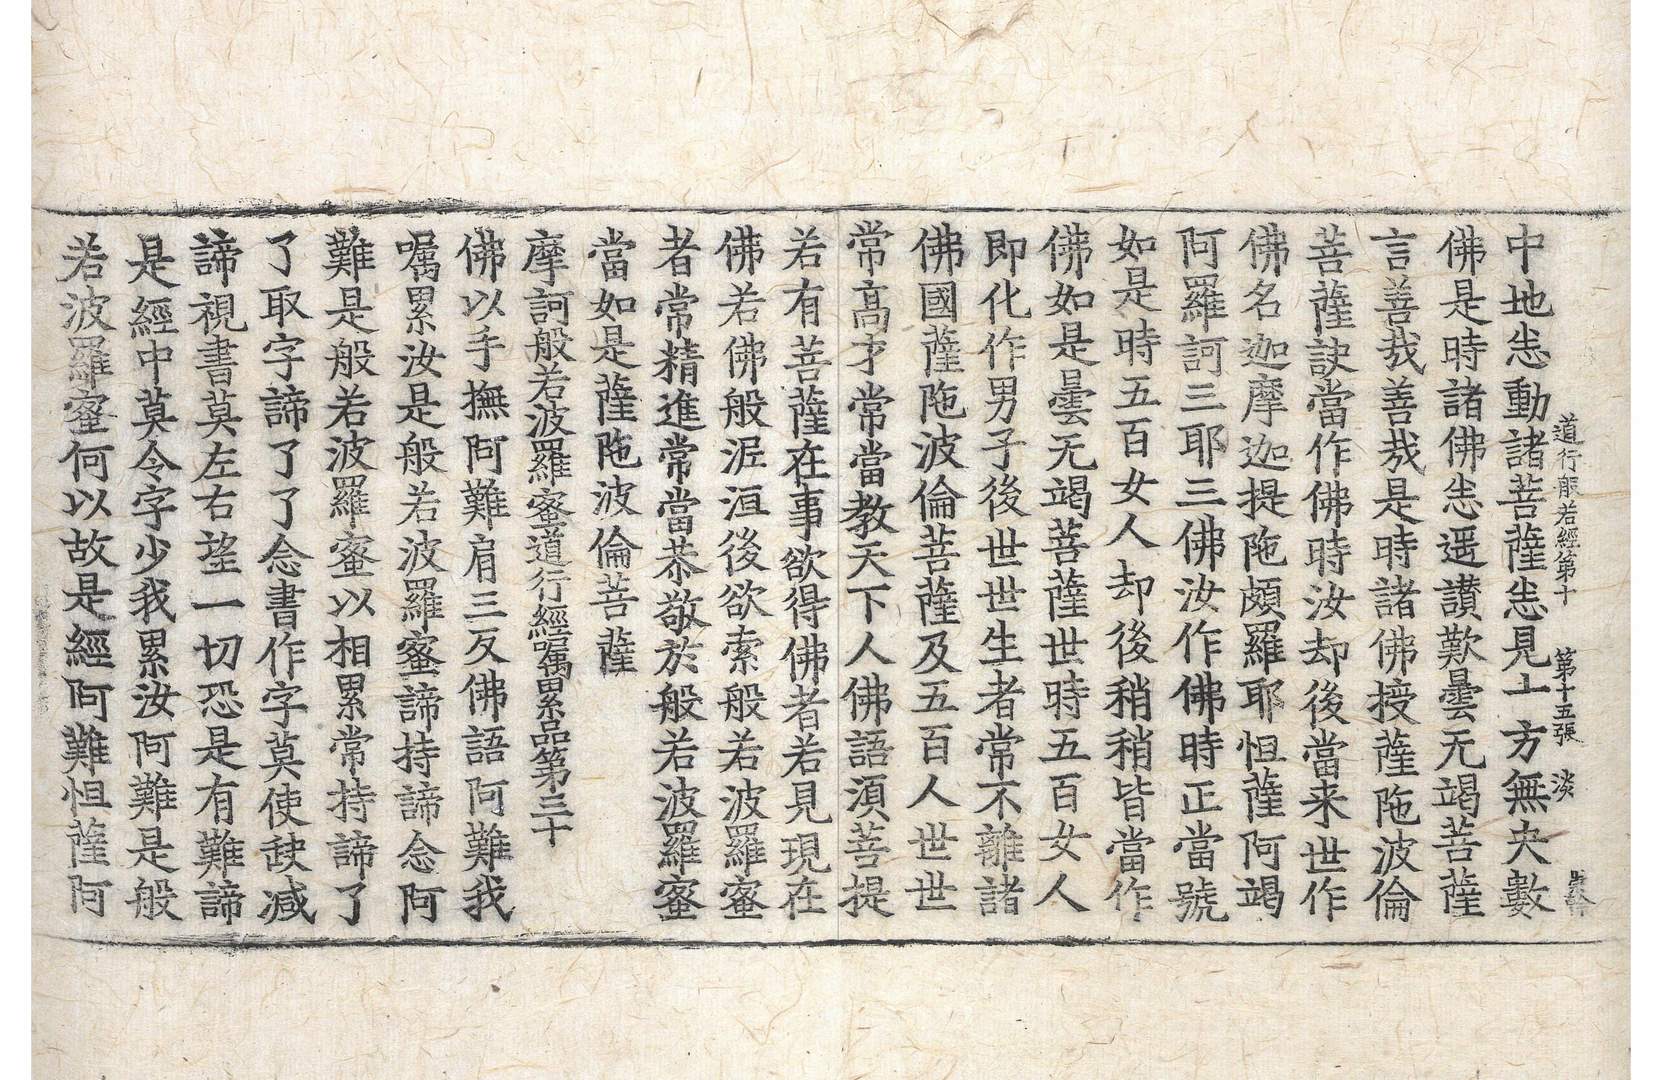 道行般若經第十 第十五張 淡
中地悉動諸菩薩悉見十方無央數
佛是時諸佛悉遥讃歎曇无竭菩薩
言善㢤善㢤是時諸佛授薩陁波倫
菩薩訣當作佛時汝却後當来世作
佛名迦摩迦提陁頗羅耶怛薩阿竭
阿羅訶三耶三佛汝作佛時正當號
如是時五百女人却後稍稍皆當作
佛如是曇无竭菩薩世時五百女人
即化作男子後世世生者常不離諸
佛國薩陁波倫菩薩及五百人世世
常高才常當教天下人佛語湏菩提
若有菩薩在事欲得佛者若見現在
佛若佛般泥洹後欲索般若波羅蜜
者常精進常當恭敬於般若波羅蜜
當如是薩陁波倫菩薩
摩訶般若波羅蜜道行經囑累品第三十
佛以手撫阿難肩三反佛語阿難我
囑累汝是般若波羅蜜諦持諦念阿
難是般若波羅蜜以相累常持諦了
了取字諦了了念書作字莫使缺减
諦視書莫左右望一切恐是有難諦
是經中莫令字少我累汝阿難是般
若波羅蜜何以故是經阿難怛薩阿